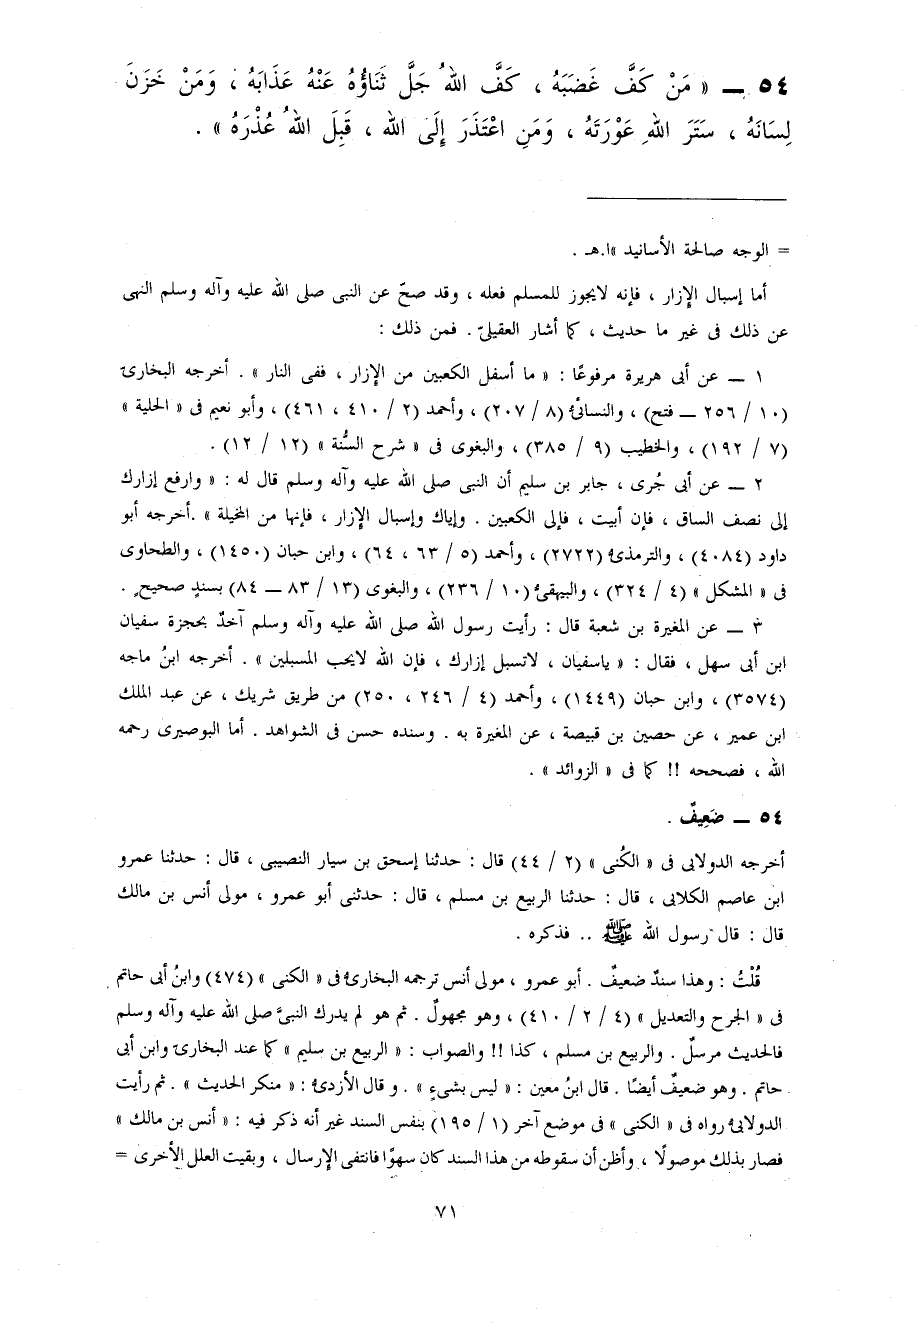 ٥٤ ــ « مَنْ كَفَّ غَضَبَهُ ، كَفَّ اللهُ جَلَّ ثَنَاؤُهُ عَنْهُ عَذَابَهُ ، وَمَنْ خَزَنَ
لِسَانَهُ ، سَتَرَ اللهِ عَوْرَتَهُ ، وَمَنِ اعْتَذَرَ إِلَى الله ، قَبِلَ اللهُ عُذْرَهُ » .
= الوجه صالحة الأسانيد »ا.هـ .
أما إسبال الإزار ، فإنه لايجوز للمسلم فعله ، وقد صحّ عن النبى صلى الله عليه وآله وسلم النهى
عن ذلك فى غير ما حديث ، كما أشار العقيلىّ . فمن ذلك :
١ ــ عن أبى هريرة مرفوعًا : « ما أسفل الكعبين من الإزار ، ففى النار » . أخرجه البخارىّ
(١٠ / ٢٥٦ ــ فتح) ، والنسائىُّ (٨ / ٢٠٧) ، وأحمد (٢ / ٤١٠ ، ٤٦١) ، وأبو نعيم فى « الحلية »
(٧ / ١٩٢) ، والخطيب (٩ / ٣٨٥) ، والبغوى فى « شرح السُّنة » (١٢ / ١٢) .
٢ ــ عن أبى جُرى ، جابر بن سليم أن النبى صلى الله عليه وآله وسلم قال له : « وارفع إزارك
إلى نصف الساق ، فإن أبيت ، فإلى الكعبين . وإياك وإسبال الإزار ، فإنها من المخيلة » .أخرجه أبو
داود (٤٠٨٤) ، والترمذىُّ (٢٧٢٢) ، وأحمد (٥ / ٦٣ ، ٦٤) ، وابن حبان (١٤٥٠) ، والطحاوى
فى « المشكل » (٤ / ٣٢٤) ، والبيهقىُّ (١٠ / ٢٣٦) ، والبغوى (١٣ / ٨٣ ــ ٨٤) بسندٍ صحيحٍ .
٣ ــ عن المغيرة بن شعبة قال : رأيت رسول الله صلى الله عليه وآله وسلم آخذٌ بحجزة سفيان
ابن أبى سهل ، فقال : « ياسفيان ، لاتسبل إزارك ، فإن الله لايحب المسبلين » . أخرجه ابنُ ماجه
(٣٥٧٤) ، وابن حبان (١٤٤٩) ، وأحمد (٤ / ٢٤٦ ، ٢٥٠) من طريق شريك ، عن عبد الملك
ابن عمير ، عن حصين بن قبيصة ، عن المغيرة به . وسنده حسن فى الشواهد . أما البوصيرى رحمه
الله ، فصححه !! كما فى « الزوائد » .
٥٤ ــ ضَعِيفٌ .
أخرجه الدولابى فى « الكُنى » (٢ / ٤٤) قال : حدثنا إسحق بن سيار النصيبى ، قال : حدثنا عمرو
ابن عاصم الكلابى ، قال : حدثنا الربيع بن مسلم ، قال : حدثنى أبو عمرو ، مولى أنس بن مالك
قال : قال رسول الله ﷺ .. فذكره .
قُلْتُ : وهذا سندٌ ضعيفٌ . أبو عمرو ، مولى أنس ترجمه البخارىُّ فى « الكنى » (٤٧٤) وابنُ أبى حاتم
فى « الجرح والتعديل » (٤ / ٢ / ٤١٠) ، وهو مجهولٌ . ثم هو لم يدرك النبىَّ صلى الله عليه وآله وسلم
فالحديث مرسلٌ . والربيع بن مسلم ، كذا !! والصواب : « الربيع بن سليم » كما عند البخارىّ وابن أبى
حاتم . وهو ضعيفٌ أيضًا . قال ابنُ معين : « ليس بشىءٍ » . و قال الأزدىُّ : « منكر الحديث » . ثم رأيت
الدولابىُّ رواه فى « الكنى » فى موضع آخر (١ / ١٩٥) بنفس السند غير أنه ذكر فيه : « أنس بن مالك »
فصار بذلك موصولًا ، وأظن أن سقوطه من هذا السند كان سهوًا فانتفى الإرسال ، وبقيت العلل الأخرى =
٧١